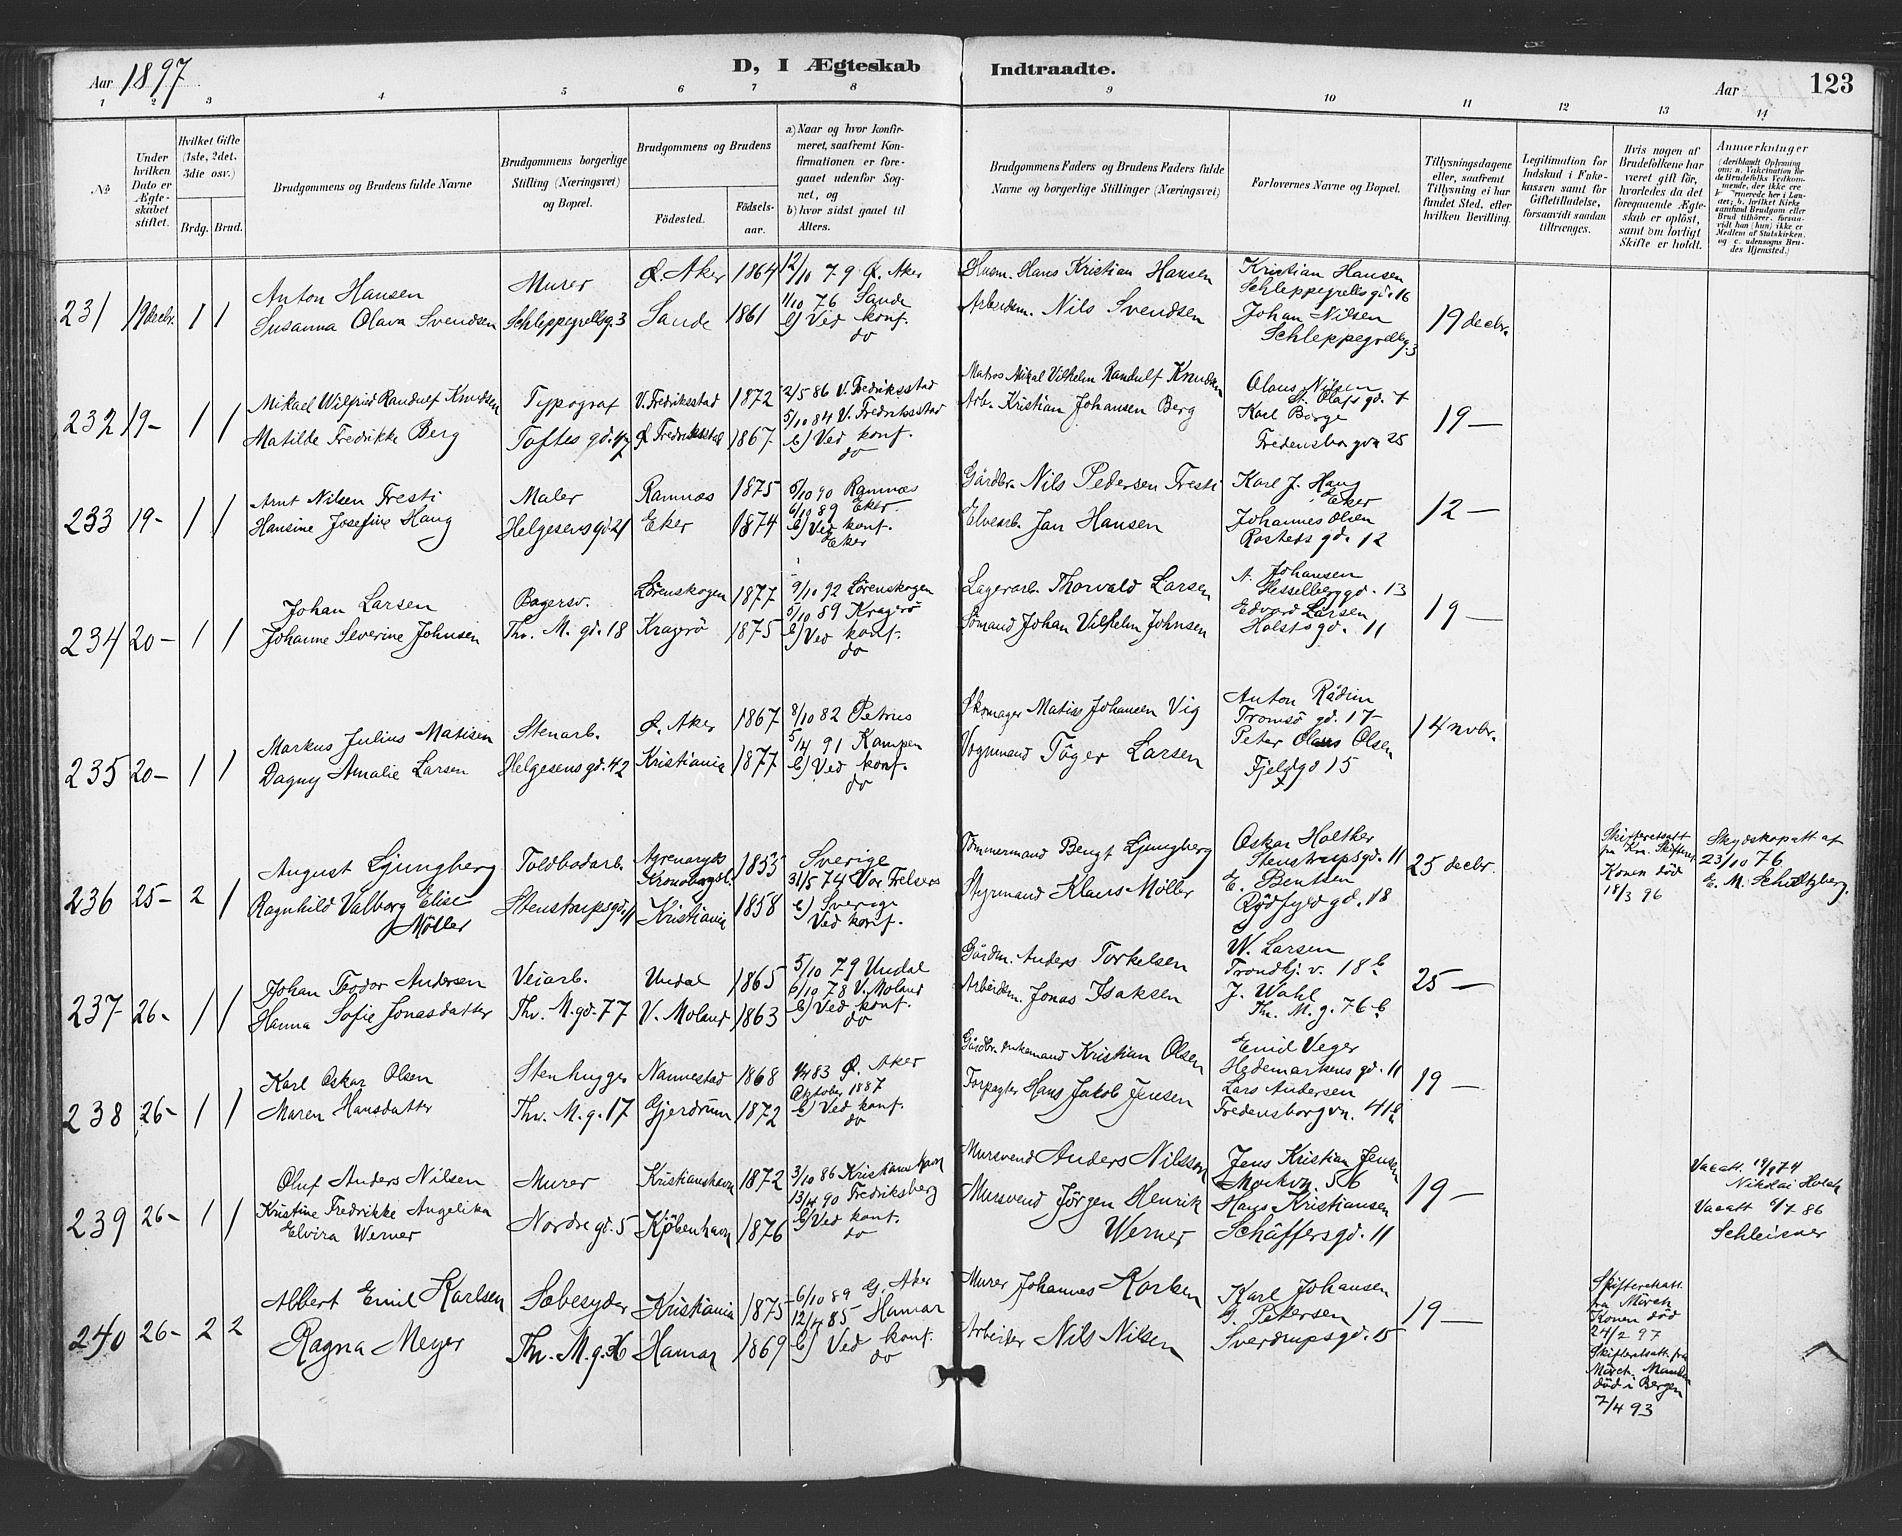 Aar 1897
D, I Ægteskab
Indtraadte.
Aar
123
1 2 3 4 5 6 7 8 9 10 11 12 13 14
No
Under hvilken Dato er Ægteskabet stiftet.
Hvilket Gifte (1ste, 2det, 3die osv.)
Brdg. Brud.
Brudgommens og Brudens fulde Navne
Brudgommens borgerlige Stilling (Næringsvei) og Bopæl.
Brudgommens og Brudens
Fødested.
Fødselsaar.
a) Naar og hvor konfirmeret, saafremt Konfirmationen er foregaaet udenfor Sognet, og
b) hvor sidst gaaet til Alters.
Brudgommens Faders og Brudens Faders fulde Navne og borgerlige Stillinger (Næringsvei)
Forlovernes Navne og Bopæl.
Tillysningsdagene eller, saafremt Tillysning ei har fundet Sted, efter hvilken Bevilling.
Legitimation for Indskud i Fakekassen samt for Giftetilladelse, forsaavidt saadan tiltrænges.
Hvis nogen af Brudefolkene har været gift før, hvorledes da det foregaaende Ægteskab er opløst, samt om lovligt Skifte er holdt.
Anmærkninger
231 19 decbr. 1 1
Anton Hansen
Susanna Olava Svendsen
Murer
Schleppegrellsg. 3
Ø. Aker 1864
Sande 1861
12/10 79 Ø. Aker
1/10 76 Sande
b) Ved konf.
do
Husm. Hans Kristian Hansen
Arbeidsm. Nils Svendsen
Kristian Hansen
Schleppegrells gd. 16
Johan Nilsen
Schleppegrellsg. 3
19 decbr.
232 19- 1 1
Mikael Wilfried Randulf Knudsen
Matilde Fredrikke Berg
Typograf
Toftes gd. 47
V. Fredriksstad 1872
Ø Fredriksstad 1867
2/5 86 V. Fredriksstad
5/10 84 V. Fredriksstad
b) Ved konf.
do
Matros Mikal Vilhelm Randulf Knudsen
Arb. Kristian Johansen Berg
Olaus Nilsen
St. Olafs gd. 7
Karl Borge
Fredensborgvn 25
19 —
233 19- 1 1
Arnt Nilsen Tresti
Hansine Josefine Haug
Maler
Helgesensgd. 21
Ramnæs 1875
Eker 1874
5/10 90 Ramnæs
6/10 89 Eker
b) Ved konf.
Eker
Gårdbr. Nils Pedersen Tresti
Elvearb. Jan Hansen
Karl J. Haug
Eker
Johannes Olsen
Rosteds gd. 12
12 —
234 20- 1 1
Johan Larsen
Johanne Severine Johnsen
Bagersv.
Thv. M. gd. 18
Lørenskogen 1877
Kragerø 1875
9/10 92 Lørenskogen
5/10 89 Kragerø
b) Ved konf.
do
Lagerarb. Thorvald Larsen
Sömand Johan Vilhelm Johnsen
A. Johansen
Hesselberggd. 13
Edvard Larsen
Holstsgd. 11
19 —
235 20- 1 1
Markus Julius Matisen
Dagny Amalie Larsen
Stenarb.
Helgesensgd. 42
Ø. Aker 1867
Kristiania 1877
8/10 82 Petrus
5/4 91 Kampen
b) Ved konf.
do
Skomager Matiss Johansen Vig
Vognmand Töger Larsen
Anton Rådim
Tromsö gd. 17
Peter Olaus Olsen
Fjeldgd 15
14 novbr.
236 25- 2 1
August Ljungberg
Ragnhild Valborg Elise
Møller
Toldbodarb.
Stenstrupsgd. 11
Agrenaryds
Kronobergsl. 1853
Kristiania 1858
Sverige
31/5 74 Vor Frelsers
b) Sverige
Ved konf.
Tømmermand Bengt Ljungberg
Styrmand Klaus Møller
Oskar Holther
Stenstrupsgd. 11
E. Bentsen
Rødfyldgd. 18
25 decbr.
Skifteretsatt
fra Kra. Skifteret
Konen død
18/3 96
Skydskopatt af
23/10 76
E. M. Schultzberg.
237 26- 1 1
Johan Teodor Andersen
Hanna Sofie Jonasdatter
Veiarb.
Thv. M. gd. 77
Undal 1865
V. Moland 1863
5/10 79 Undal
6/10 78 V. Moland
b) Ved konf.
do
Gårdm. Anders Torkelsen
Arbeidsm. Jonas Isaksen
W. Larsen
Trondhj. v. 18 b
J. Wahl
Th. M. g. 76 b
25 —
238 26- 1 1
Karl Oskar Olsen
Maren Hansdatter
Stenhugger
Thv. M. g. 17
Nannestad 1868
Gjerdrum 1872
1/4 83 Ø. Aker
Oktober 1887
b) Ved konf.
do
Gårdbr. enkemand Kristian Olsen
Forpagter Hans Jakob Jensen
Emil Veger
Hedemarkens gd. 11
Lars Andersen
Fredensborgvn. 41 b
19 —
239 26- 1 1
Oluf Anders Nilsen
Kristine Fredrikke Angelika
Elvira Werner
Murer
Nordre gd. 5
Kristianshavn 1872
Kjöbenhavn 1876
3/10 86 Kristianshavn
13/4 90 Fredriksberg
b) Ved konf.
do
Mursvend Anders Nilsson
Mursvend Jørgen Henrik
Werner
Jens Kristian Jensen
Morkvn. 56
Hans Kristiansen
Schäffersgd. 11
19 —
Vacatt. 19/9 74
Nikolai Holck
Vacatt 6/7 86
Schleisner
240 26- 2 2
Albert Emil Karlsen
Ragna Meyer
Sæbesyder
Th. M. g.
Kristiania 1875
Hamar 1869
6/10 89 G. Aker
12/4 85 Hamar
b) Ved konf.
do
Murer Johannes Korben
Arbeider Nils Nilsen
Karl Johansen
G. Petersen
Sverdrupsgd. 15
19 —
Skifteretsatt.
fra March
Konen død
24/2 97
Skifteretsatt. fra
March. Manden
död i Bergen
7/4 93